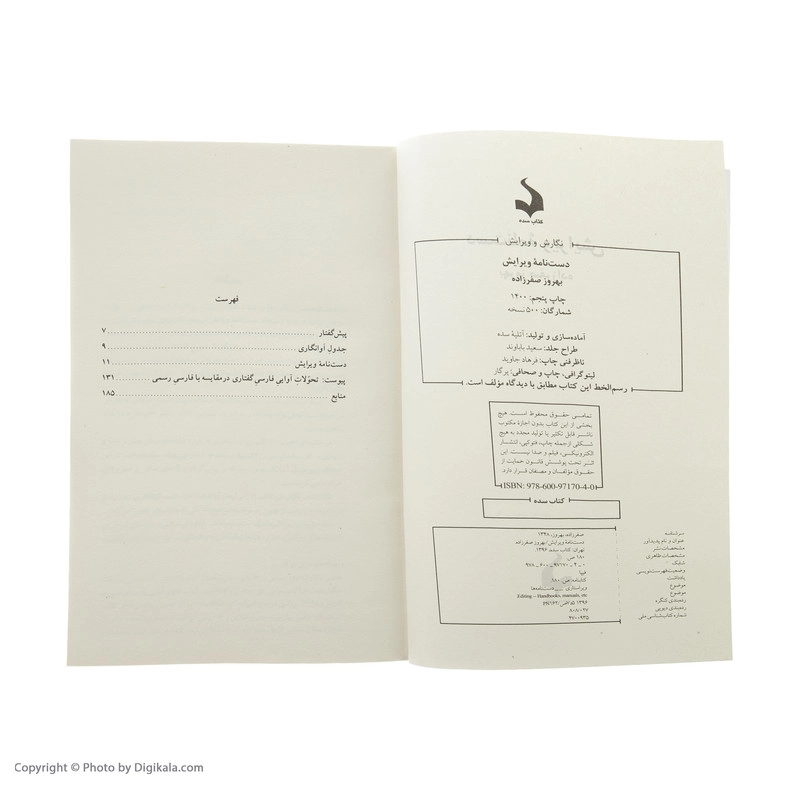 کتاب سده
نگارش و ویرایش
دست‌نامهٔ ویرایش
بهروز صفرزاده
چاپ پنجم: ۱۴۰۰
شمارگان: ۵۰۰ نسخه
آماده‌سازی و تولید: آتلیهٔ سده
طراح جلد: سعید باباوند
ناظر فنی چاپ: فرهاد جاوید
لیتوگرافی، چاپ و صحافی: پرگار
رسم‌الخط این کتاب مطابق با دیدگاه مؤلف است.
تمامی حقوق محفوظ است. هیچ
بخشی از این کتاب بدون اجازهٔ مکتوب
ناشر قابل تکثیر یا تولید مجدد به هیچ
شکلی از جمله چاپ، فتوکپی، انتشار
الکترونیکی، فیلم و صدا نیست. این
اثر تحت پوشش قانون حمایت از
حقوق مؤلفان و مصنفان قرار دارد.
ISBN: 978-600-97170-4-0
کتاب سده
سرشناسه صفرزاده، بهروز، ۱۳۴۸
عنوان و نام پدیدآور دست‌نامهٔ ویرایش/بهروز صفرزاده
مشخصات نشر تهران: کتاب سده، ۱۳۹۶
مشخصات ظاهری ۱۸۰ ص.
شابک
وضعیت فهرست‌نویسی فیپا
یادداشت کتابنامه: ص. ۱۸۰
موضوع ویراستاری -- دست‌نامه‌ها
موضوع Editing -- Handbooks, manuals, etc
رده‌بندی کنگره
رده‌بندی دیویی ۸۰۸/۰۲۷
شماره کتابشناسی ملی ۴۷۰۰۹۳۵
فهرست
پیش‌گفتار ۷
جدول آوانگاری ۹
دست‌نامهٔ ویرایش ۱۱
پیوست: تحوّلات آوایی فارسیِ گفتاری در مقایسه با فارسیِ رسمی ۱۳۱
منابع ۱۸۵
Copyright © Photo by Digikala.com